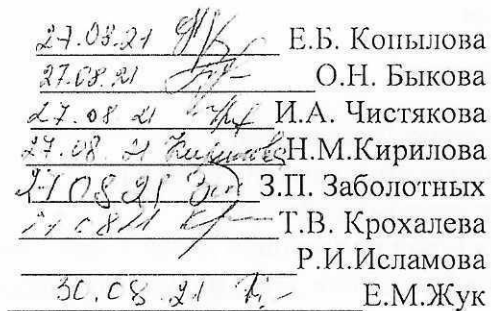 27.08.21 Е.Б. Копылова
27.08.21 О.Н. Быкова
27.08 21 И.А. Чистякова
27.08. 21 Н.М.Кирилова
27 08 21 З.П. Заболотных
Т.В. Крохалева
Р.И.Исламова
30.08.21 Е.М.Жук